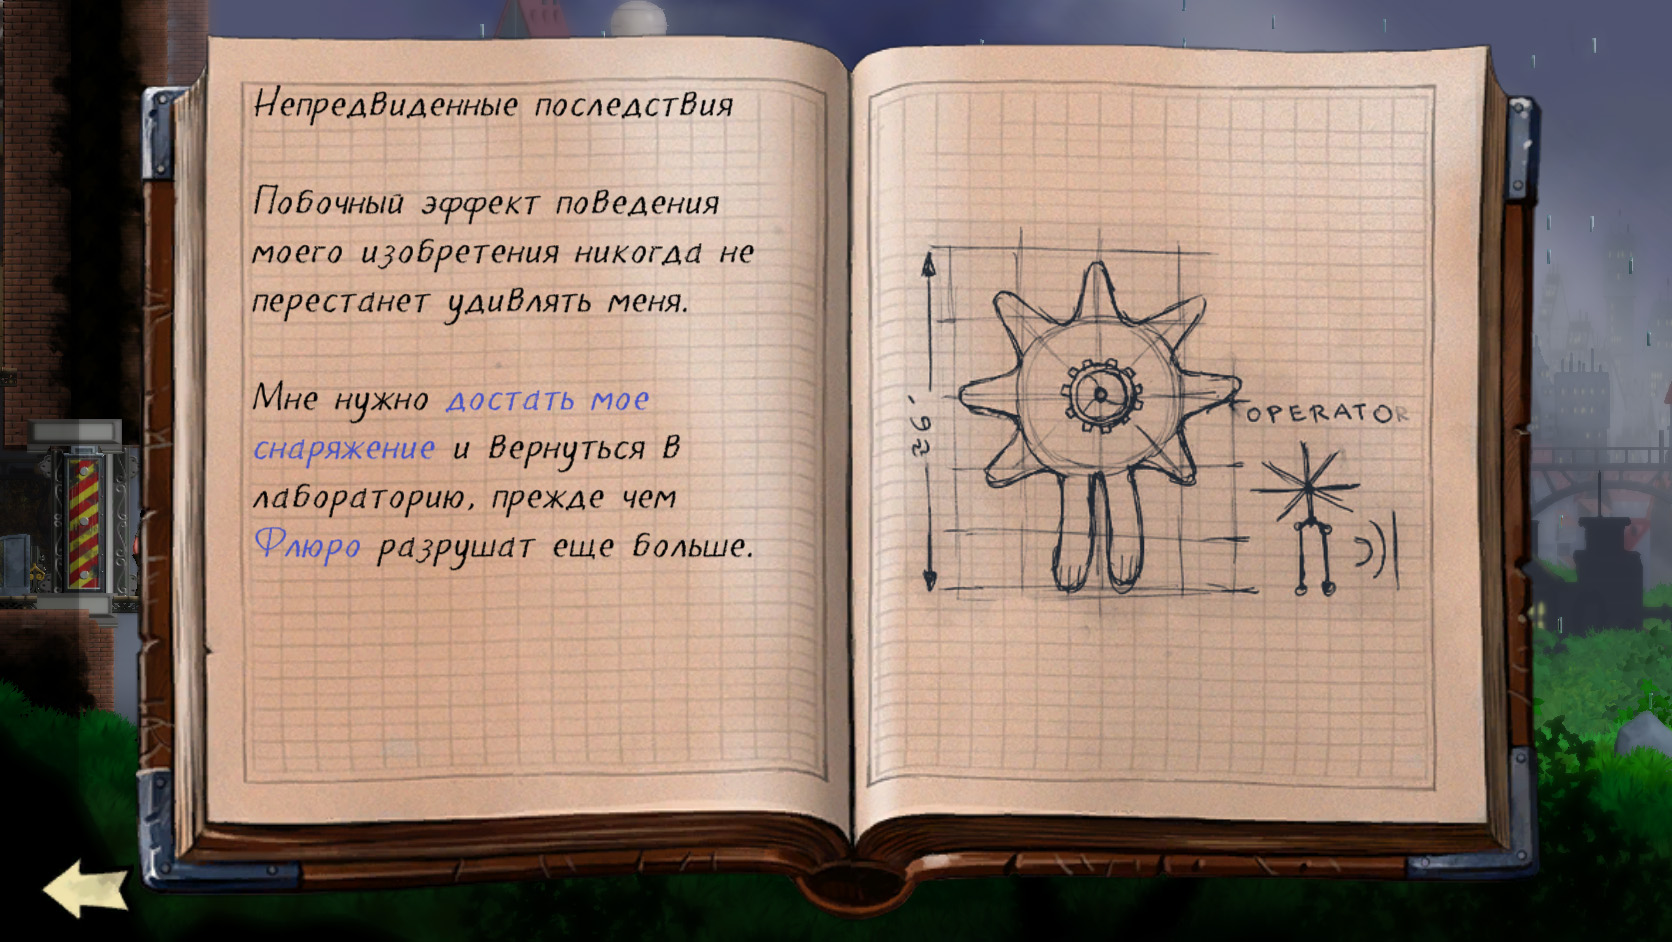 Непредвиденные последствия
Побочный эффект поведения
моего изобретения никогда не
перестанет удивлять меня.
Мне нужно достать мое
снаряжение и вернуться в
лабораторию, прежде чем
Флюро разрушат еще больше.
OPERATOR